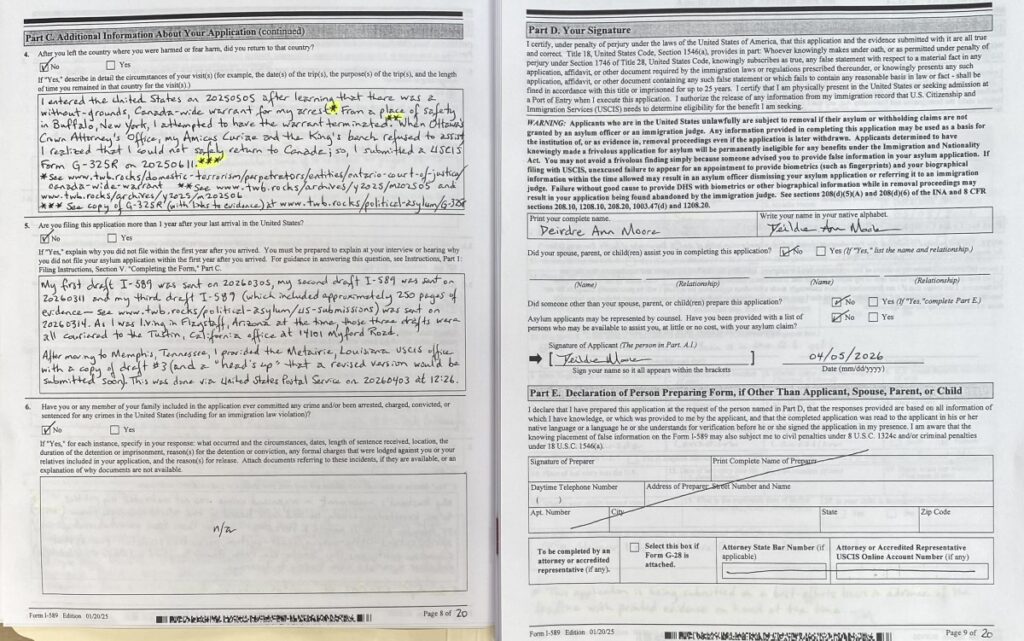 Part C. Additional Information About Your Application (continued)
4. After you left the country where you were harmed or fear harm, did you return to that country?
No Yes
If "Yes," describe in detail the circumstances of your visit(s) (for example, the date(s) of the trip(s), the purpose(s) of the trip(s), and the length
of time you remained in that country for the visit(s).)
I entered the United States on 20250505 after learning that there was a
without-grounds, Canada-wide warrant for my arrest.* From a place of safety
in Buffalo, New York, I attempted to have the warrant terminated.** When Ottawa's
Crown Attorney's Office, my Amicus Curiae and the King's bench refused to assist
I realized that I could not safely return to Canada; so, I submitted a USCIS
Form G-325R on 20250611.***
*See www.twb.rocks/domestic-terrorism/perpetrators/entities/ontario-court-of-justice/
canada-wide-warrant **See www.twb.rocks/archives/y2025/m202505 and
www.twb.rocks/archives/y2025/m202506
*** See copy of G-325R (with links to evidence) at www.twb.rocks/political-asylum/G-325R
5. Are you filing this application more than 1 year after your last arrival in the United States?
No Yes
If "Yes," explain why you did not file within the first year after you arrived. You must be prepared to explain at your interview or hearing why
you did not file your asylum application within the first year after you arrived. For guidance in answering this question, see Instructions, Part 1:
Filing Instructions, Section V. "Completing the Form," Part C.
My first draft I-589 was sent on 20260305, my second draft I-589 was sent on
20260311 and my third draft I-589 (which included approximately 250 pages of
evidence— See www.twb.rocks/political-asylum/us-submissions) was sent on
20260314. As I was living in Flagstaff, Arizona at the time, those three drafts were
all couriered to the Tustin, California office at 14101 Myford Road.
After moving to Memphis, Tennessee, I provided the Metairie, Louisiana USCIS office
with a copy of draft #3 (and a "head's up" that a revised version would be
submitted soon). This was done via United States Postal Service on 20260403 at 12:26.
6. Have you or any member of your family included in the application ever committed any crime and/or been arrested, charged, convicted, or
sentenced for any crimes in the United States (including for an immigration law violation)?
No Yes
If "Yes," for each instance, specify in your response: what occurred and the circumstances, dates, length of sentence received, location, the
duration of the detention or imprisonment, reason(s) for the detention or conviction, any formal charges that were lodged against you or your
relatives included in your application, and the reason(s) for release. Attach documents referring to these incidents, if they are available, or an
explanation of why documents are not available.
n/a
Form I-589 Edition 01/20/25
Page 8 of 20
Part D. Your Signature
I certify, under penalty of perjury under the laws of the United States of America, that this application and the evidence submitted with it are all true
and correct. Title 18, United States Code, Section 1546(a), provides in part: Whoever knowingly makes under oath, or as permitted under penalty of
perjury under Section 1746 of Title 28, United States Code, knowingly subscribes as true, any false statement with respect to a material fact in any
application, affidavit, or other document required by the immigration laws or regulations prescribed thereunder, or knowingly presents any such
application, affidavit, or other document containing any such false statement or which fails to contain any reasonable basis in law or fact - shall be
fined in accordance with this title or imprisoned for up to 25 years. I certify that I am physically present in the United States or seeking admission at
a Port of Entry when I execute this application. I authorize the release of any information from my immigration record that U.S. Citizenship and
Immigration Services (USCIS) needs to determine eligibility for the benefit I am seeking.
WARNING: Applicants who are in the United States unlawfully are subject to removal if their asylum or withholding claims are not
granted by an asylum officer or an immigration judge. Any information provided in completing this application may be used as a basis for
the institution of, or as evidence in, removal proceedings even if the application is later withdrawn. Applicants determined to have
knowingly made a frivolous application for asylum will be permanently ineligible for any benefits under the Immigration and Nationality
Act. You may not avoid a frivolous finding simply because someone advised you to provide false information in your asylum application. If
filing with USCIS, unexcused failure to appear for an appointment to provide biometrics (such as fingerprints) and your biographical
information within the time allowed may result in an asylum officer dismissing your asylum application or referring it to an immigration
judge. Failure without good cause to provide DHS with biometrics or other biographical information while in removal proceedings may
result in your application being found abandoned by the immigration judge. See sections 208(d)(5)(A) and 208(d)(6) of the INA and 8 CFR
sections 208.10, 1208.10, 208.20, 1003.47(d) and 1208.20.
Print your complete name.
Write your name in your native alphabet.
Deirdre Ann Moore
Deirdre Ann Moore
Did your spouse, parent, or child(ren) assist you in completing this application? No Yes (If "Yes," list the name and relationship.)
(Name) (Relationship) (Name) (Relationship)
Did someone other than your spouse, parent, or child(ren) prepare this application? No Yes (If "Yes,"complete Part E.)
Asylum applicants may be represented by counsel. Have you been provided with a list of
persons who may be available to assist you, at little or no cost, with your asylum claim? No Yes
Signature of Applicant (The person in Part. A.I.)
[ Deirdre Moore ] 04/05/2026
Sign your name so it all appears within the brackets Date (mm/dd/yyyy)
Part E. Declaration of Person Preparing Form, if Other Than Applicant, Spouse, Parent, or Child
I declare that I have prepared this application at the request of the person named in Part D, that the responses provided are based on all information of
which I have knowledge, or which was provided to me by the applicant, and that the completed application was read to the applicant in his or her
native language or a language he or she understands for verification before he or she signed the application in my presence. I am aware that the
knowing placement of false information on the Form I-589 may also subject me to civil penalties under 8 U.S.C. 1324c and/or criminal penalties
under 18 U.S.C. 1546(a).
Signature of Preparer
Print Complete Name of Preparer
Daytime Telephone Number
( )
Address of Preparer: Street Number and Name
Apt. Number City State Zip Code
To be completed by an
attorney or accredited
representative (if any).
Select this box if
Form G-28 is
attached.
Attorney State Bar Number (if
applicable)
Attorney or Accredited Representative
USCIS Online Account Number (if any)
Form I-589 Edition 01/20/25
Page 9 of 20